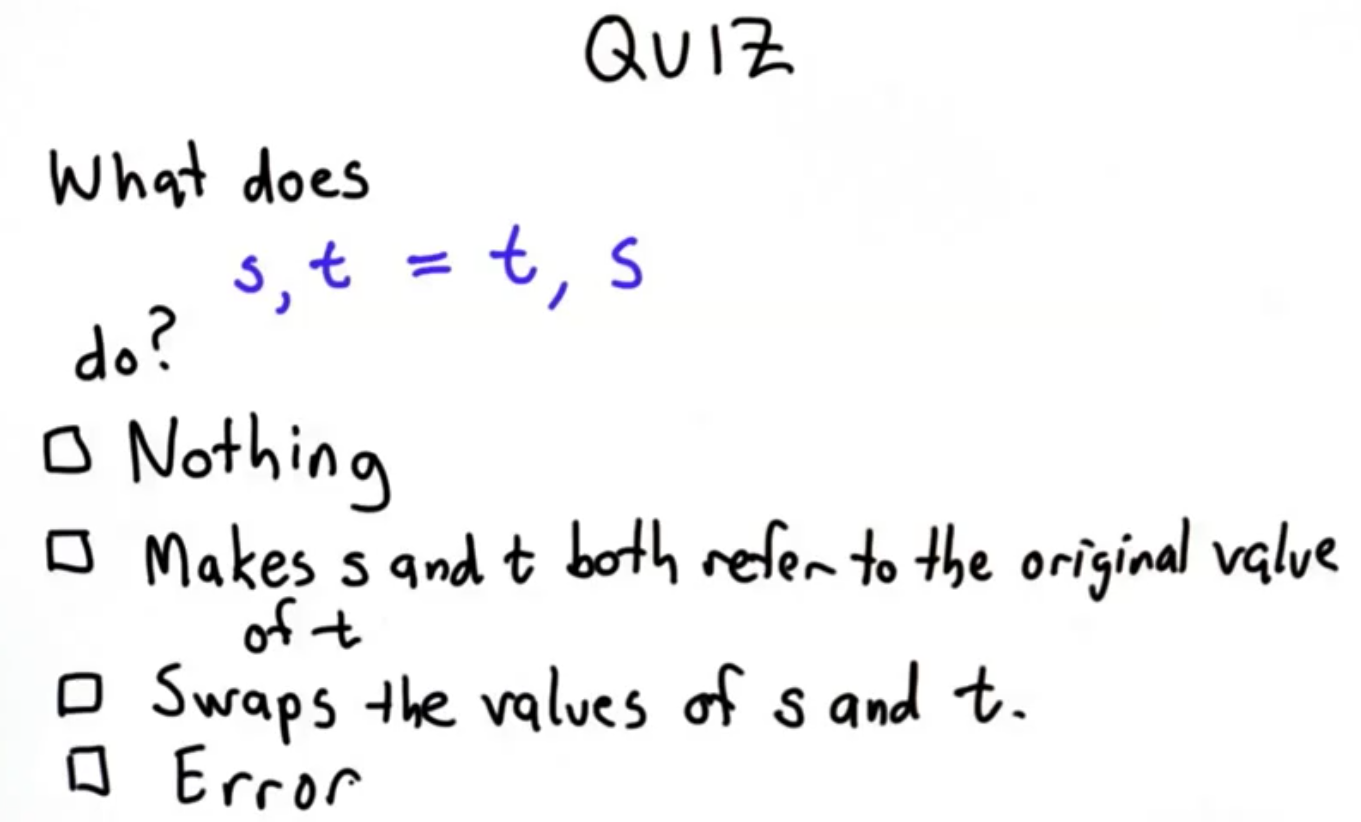 QUIZ
What does
s, t = t, s
do?
Nothing
Makes s and t both refer to the original value
of t
Swaps the values of s and t.
Error